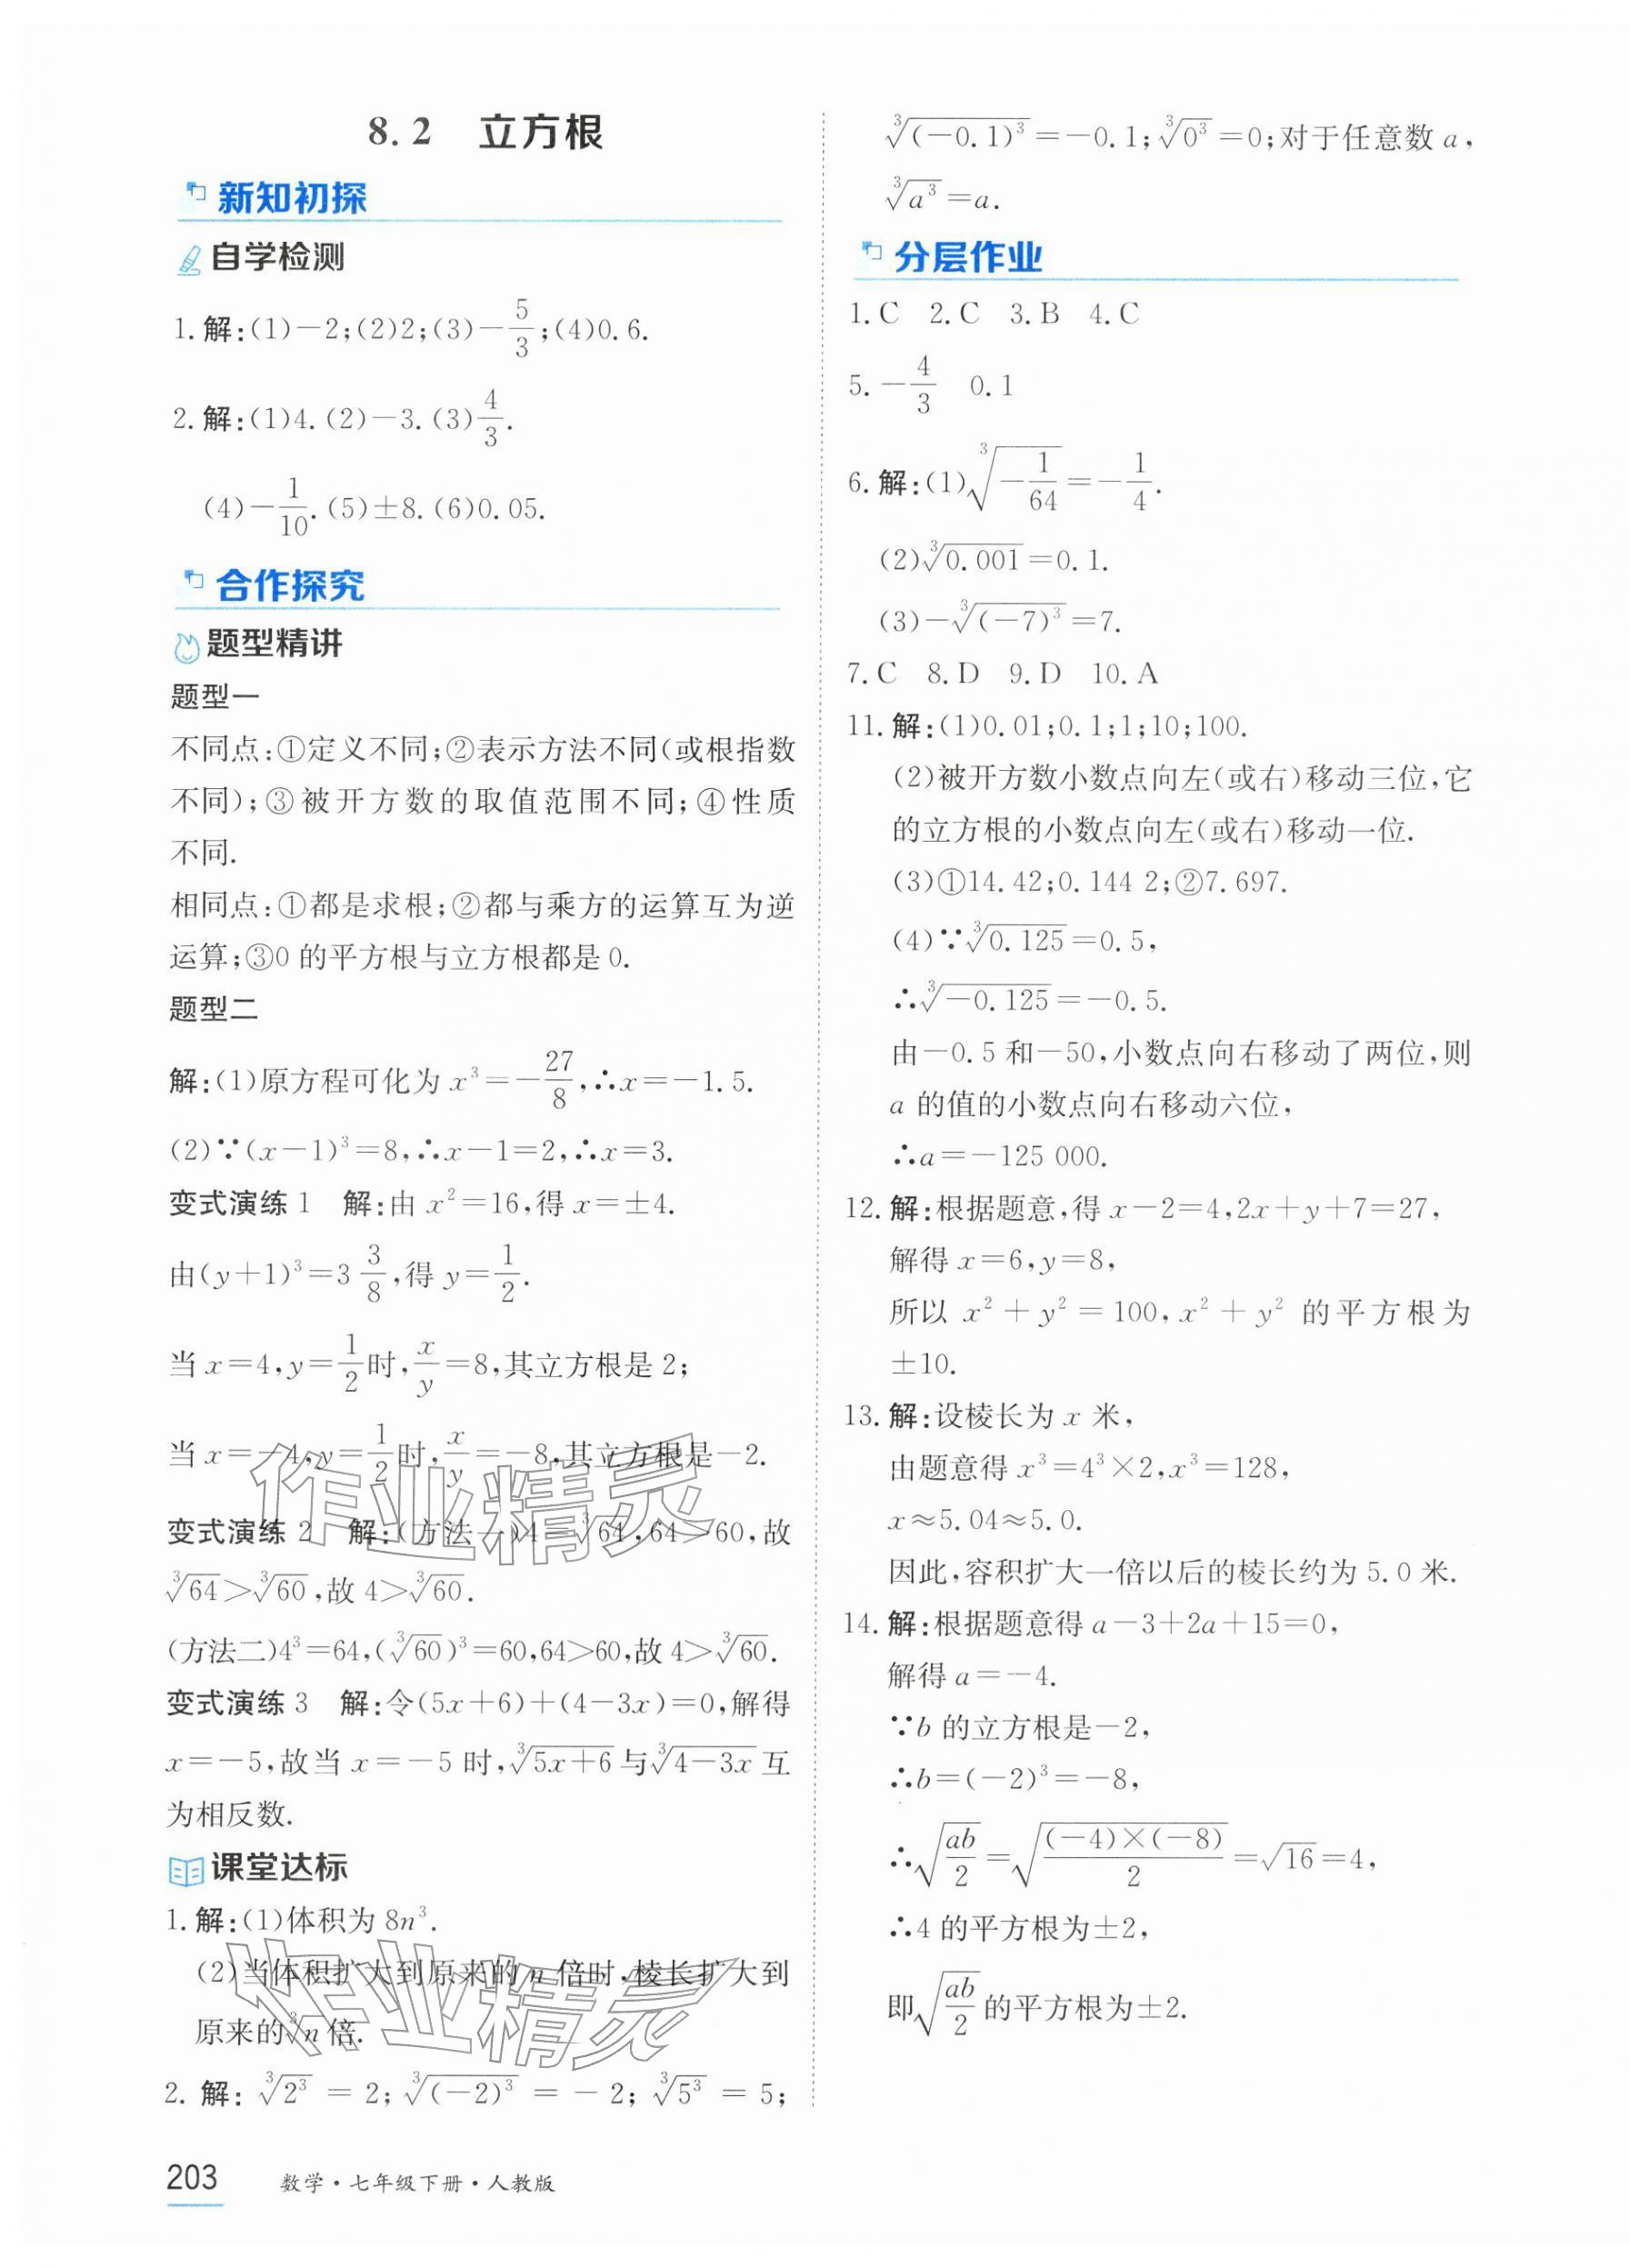 8.2　立方根
新知初探
自学检测
1.解:(1)-2;(2)2;(3)-5/3;(4)0.6.
2.解:(1)4.(2)-3.(3)4/3.
(4)-1/10.(5)±8.(6)0.05.
合作探究
题型精讲
题型一
不同点:①定义不同;②表示方法不同(或根指数
不同);③被开方数的取值范围不同;④性质
不同.
相同点:①都是求根;②都与乘方的运算互为逆
运算;③0的平方根与立方根都是0.
题型二
解:(1)原方程可化为x³=-27/8,∴x=-1.5.
(2)∵(x-1)³=8,∴x-1=2,∴x=3.
变式演练1　解:由x²=16,得x=±4.
由(y+1)³=3 3/8,得y=1/2.
当x=4,y=1/2时,x/y=8,其立方根是2;
当x=-4,y=1/2时,x/y=-8,其立方根是-2.
变式演练2　解:(方法一)4=∛64,64>60,故
∛64>∛60,故4>∛60.
(方法二)4³=64,(∛60)³=60,64>60,故4>∛60.
变式演练3　解:令(5x+6)+(4-3x)=0,解得
x=-5,故当x=-5时,∛(5x+6)与∛(4-3x)互
为相反数.
课堂达标
1.解:(1)体积为8n³.
(2)当体积扩大到原来的n倍时,棱长扩大到
原来的∛n倍.
2.解:∛(2³)=2;∛((-2)³)=-2;∛(5³)=5;
∛((-0.1)³)=-0.1;∛(0³)=0;对于任意数a,
∛(a³)=a.
分层作业
1.C　2.C　3.B　4.C
5.-4/3　0.1
6.解:(1)∛(-1/64)=-1/4.
(2)∛0.001=0.1.
(3)-∛((-7)³)=7.
7.C　8.D　9.D　10.A
11.解:(1)0.01;0.1;1;10;100.
(2)被开方数小数点向左(或右)移动三位,它
的立方根的小数点向左(或右)移动一位.
(3)①14.42;0.144 2;②7.697.
(4)∵∛0.125=0.5,
∴∛(-0.125)=-0.5.
由-0.5和-50,小数点向右移动了两位,则
a的值的小数点向右移动六位,
∴a=-125 000.
12.解:根据题意,得x-2=4,2x+y+7=27,
解得x=6,y=8,
所以x²+y²=100,x²+y²的平方根为
±10.
13.解:设棱长为x米,
由题意得x³=4³×2,x³=128,
x≈5.04≈5.0.
因此,容积扩大一倍以后的棱长约为5.0米.
14.解:根据题意得a-3+2a+15=0,
解得a=-4.
∵b的立方根是-2,
∴b=(-2)³=-8,
∴√(ab/2)=√((-4)×(-8)/2)=√16=4,
∴4的平方根为±2,
即√(ab/2)的平方根为±2.
作业精灵
作业精灵
203　数学·七年级下册·人教版